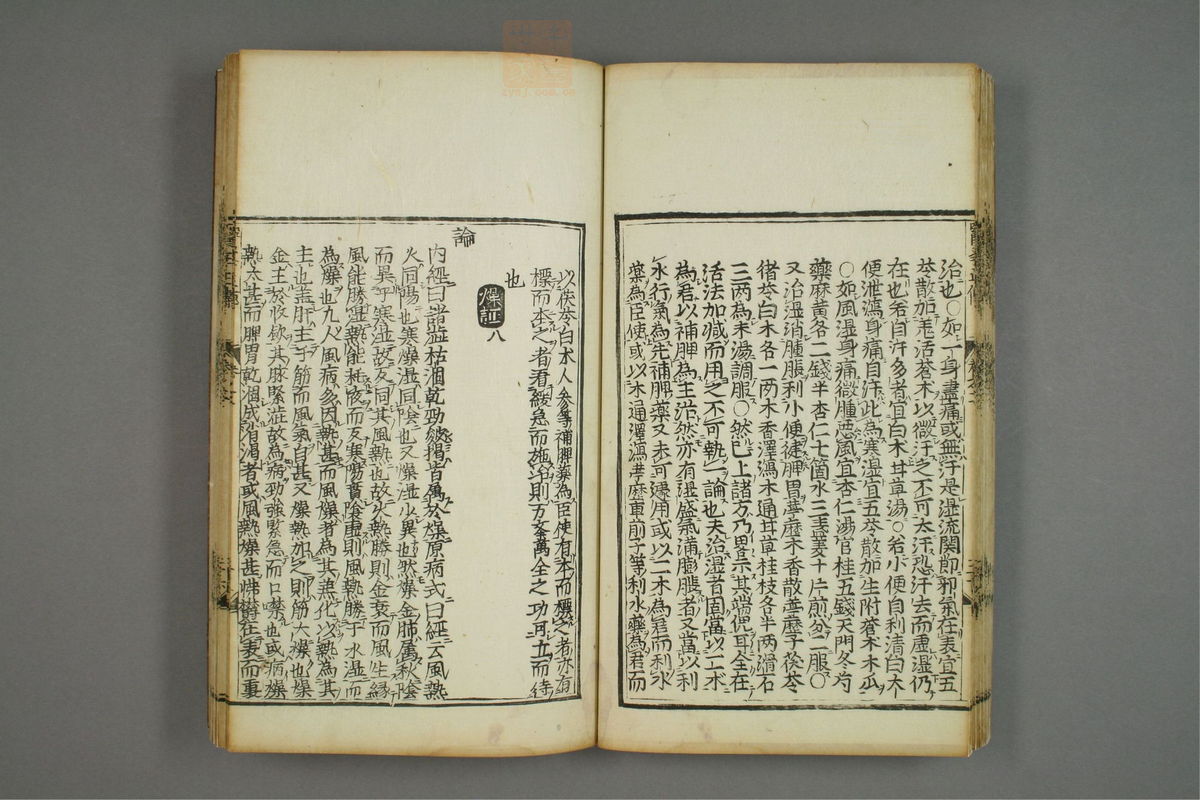 治也○如一身盡痛或無汗是湿流関節邪氣在表宜五
苓散加羌活蒼朮以微汗之不可大汗恐汗去而虛湿仍
在也若自汗多者宜白朮甘草湯○若小便自利清白大
便泄瀉身痛自汗此為寒湿宜五苓散加生附蒼朮木瓜
○如風湿身痛微腫惡風宜杏仁湯官桂五錢天門冬芍
藥麻黃各二錢半杏仁七箇水三盞姜十片煎分二服○
又治湿消腫脹利小便健脾胃葶藶木香散葶藶子茯苓
猪苓白朮各一两木香澤瀉木通甘草桂枝各半两滑石
三两為末湯調服○然已上諸方乃畧示其端倪耳全在
活法加减而用之不可執一論也夫治湿者固當以二朮
為君以補脾為主治然亦有湿盛氣满膨脹者又當以利
水行氣為先補脾藥又未可遽用或以二木為君而利水
藥為臣使或以木通澤瀉葶藶車前子等利水藥為君而
以茯苓白朮人參等補脾藥為臣使有本而標之者亦有
標而本之者看緩急而施治則方Saft萬全之功可立而待
也
燥証 八
論
内經曰諸澁枯涸乾勁皴揭皆屬於燥原病式曰經云風熱
火同陽也寒燥湿同陰也又燥湿小異也然燥金肺屬秋陰
而異乎寒湿故反同其風熱也故火熱勝則金衰而風生緣
風能勝湿熱能耗液而反寒陽實陰虛則風熱勝于水湿而
為燥也凡人風病多因熱甚而風燥者為其兼化以熱為其
主也盖肝主于筋而風氣自甚又燥熱加之則筋大燥也燥
金主於收斂其脉緊澁故為病勁強緊急而口噤也或病燥
熱太甚而脾胃乾涸成消渴者或風熱燥甚怫欝在表而裏